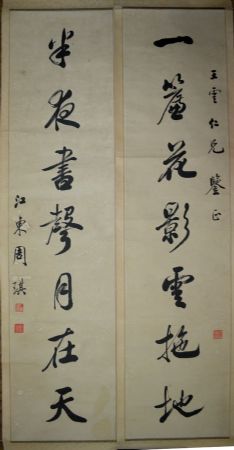 王雲仁兄鑒正
一簾花影雲拖地
半夜書聲月在天
江東周琪